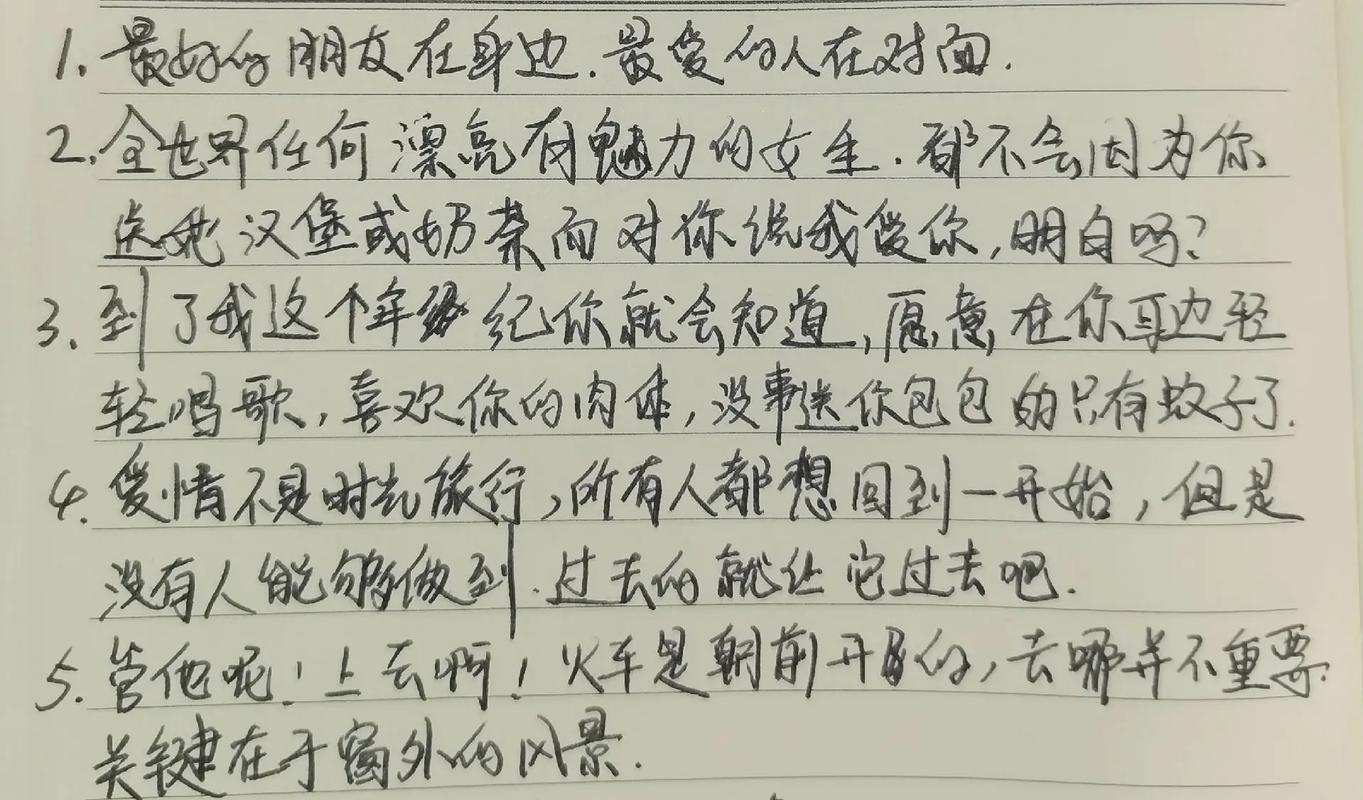 1. 最好的朋友在身边.最爱的人在对面.
2. 全世界任何漂亮有魅力的女生.都不会因为你
送她汉堡或奶茶而对你说我爱你,明白吗?
3. 到了我这个年纪你就会知道,愿意在你耳边轻
轻唱歌,喜欢你的肉体,没事送你包包的只有蚊子了.
4. 爱情不是时光旅行,所有人都想回到一开始,但是
没有人能够做到.过去的就让它过去吧.
5. 管他呢!上去啊!火车是朝前开的,去哪并不重要.
关键在于窗外的风景.